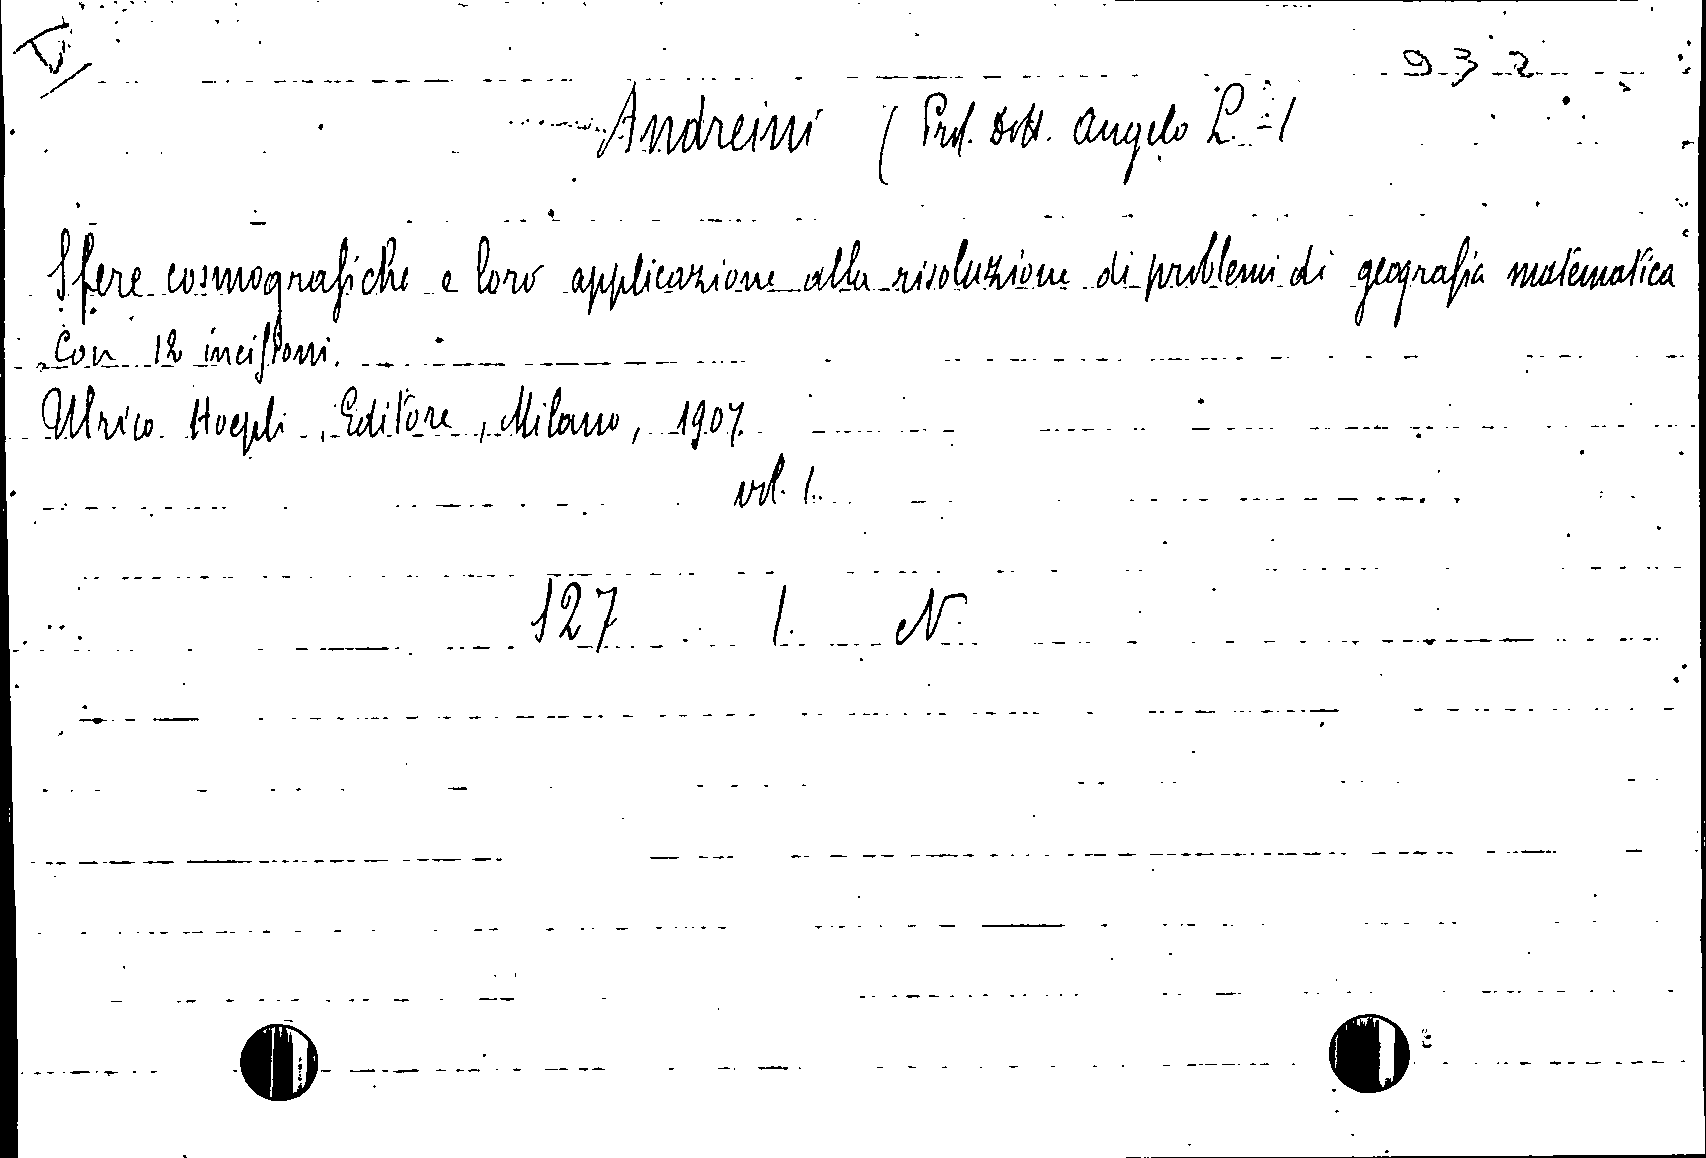 V
932
Andreini (Prof. Dott. Angelo L.)
Sfere cosmografiche e loro applicazione alla risoluzione di problemi di geografia matematica
con 12 incisioni.
Ulrico Hoepli, Editore, Milano, 1907.
vol. 1.
127 1. N.